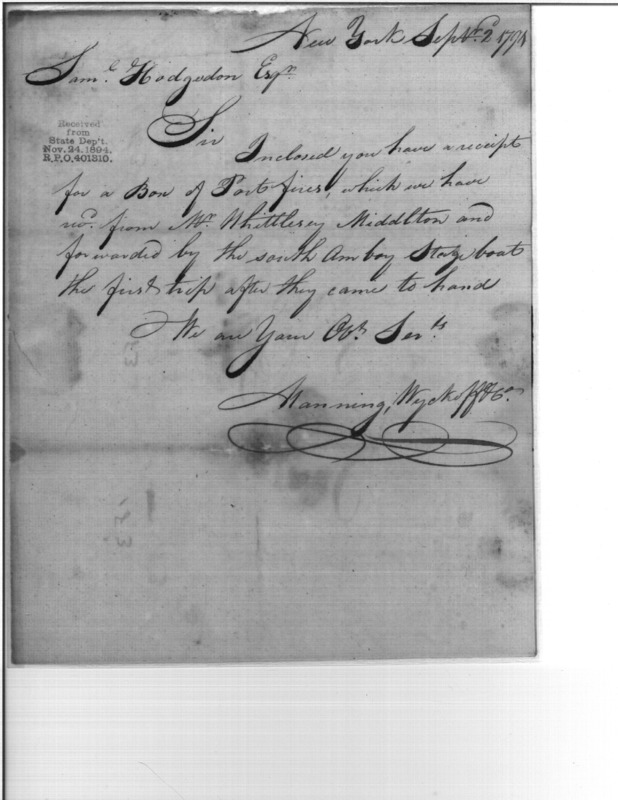 New York Septr. 2d 1794
Saml. Hodgsdon Esqr.
Received
from
State Dep't.
Nov. 24. 1894.
R.P.O. 401310.
Sir
Inclosed you have a receipt
for a Box of Portfires, which we have
recd. from Mr. Whittlesey Middlton and
forwarded by the south Amboy Stage boat
the first trip after they came to hand
We are Your Obt. Servts.
Manning, Wyckoff & Co.